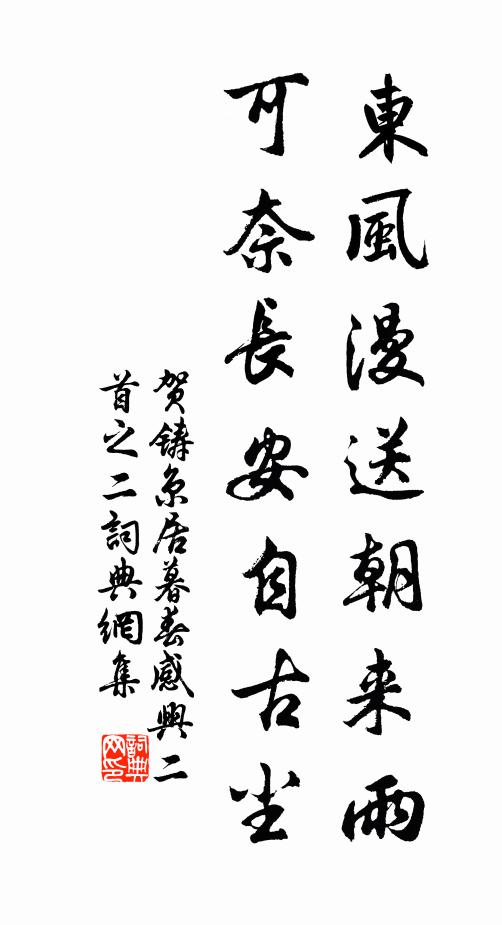 東風漫送朝来雨
可奈長安自古尘
贺铸京居暮春感興二
首之二詞典網集
詞典
网印